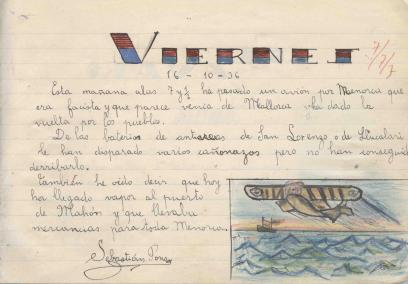 VIERNES
7/7/7
16 - 10 - 36
Esta mañana a las 7 y ½ ha pasado un avión por Menorca que
era facista y que parece venia de Mallorca y ha dado la
vuelta por los pueblos.
De las baterias de antareas de San Lorenzo o de Llucatari
le han disparado varios cañonazos pero no han conseguido
derribarlo.
También he oido decir que hoy
ha llegado vapor al puerto
de Mahón y que llevaba
mercancias para toda Menorca.
Sebastián Pons